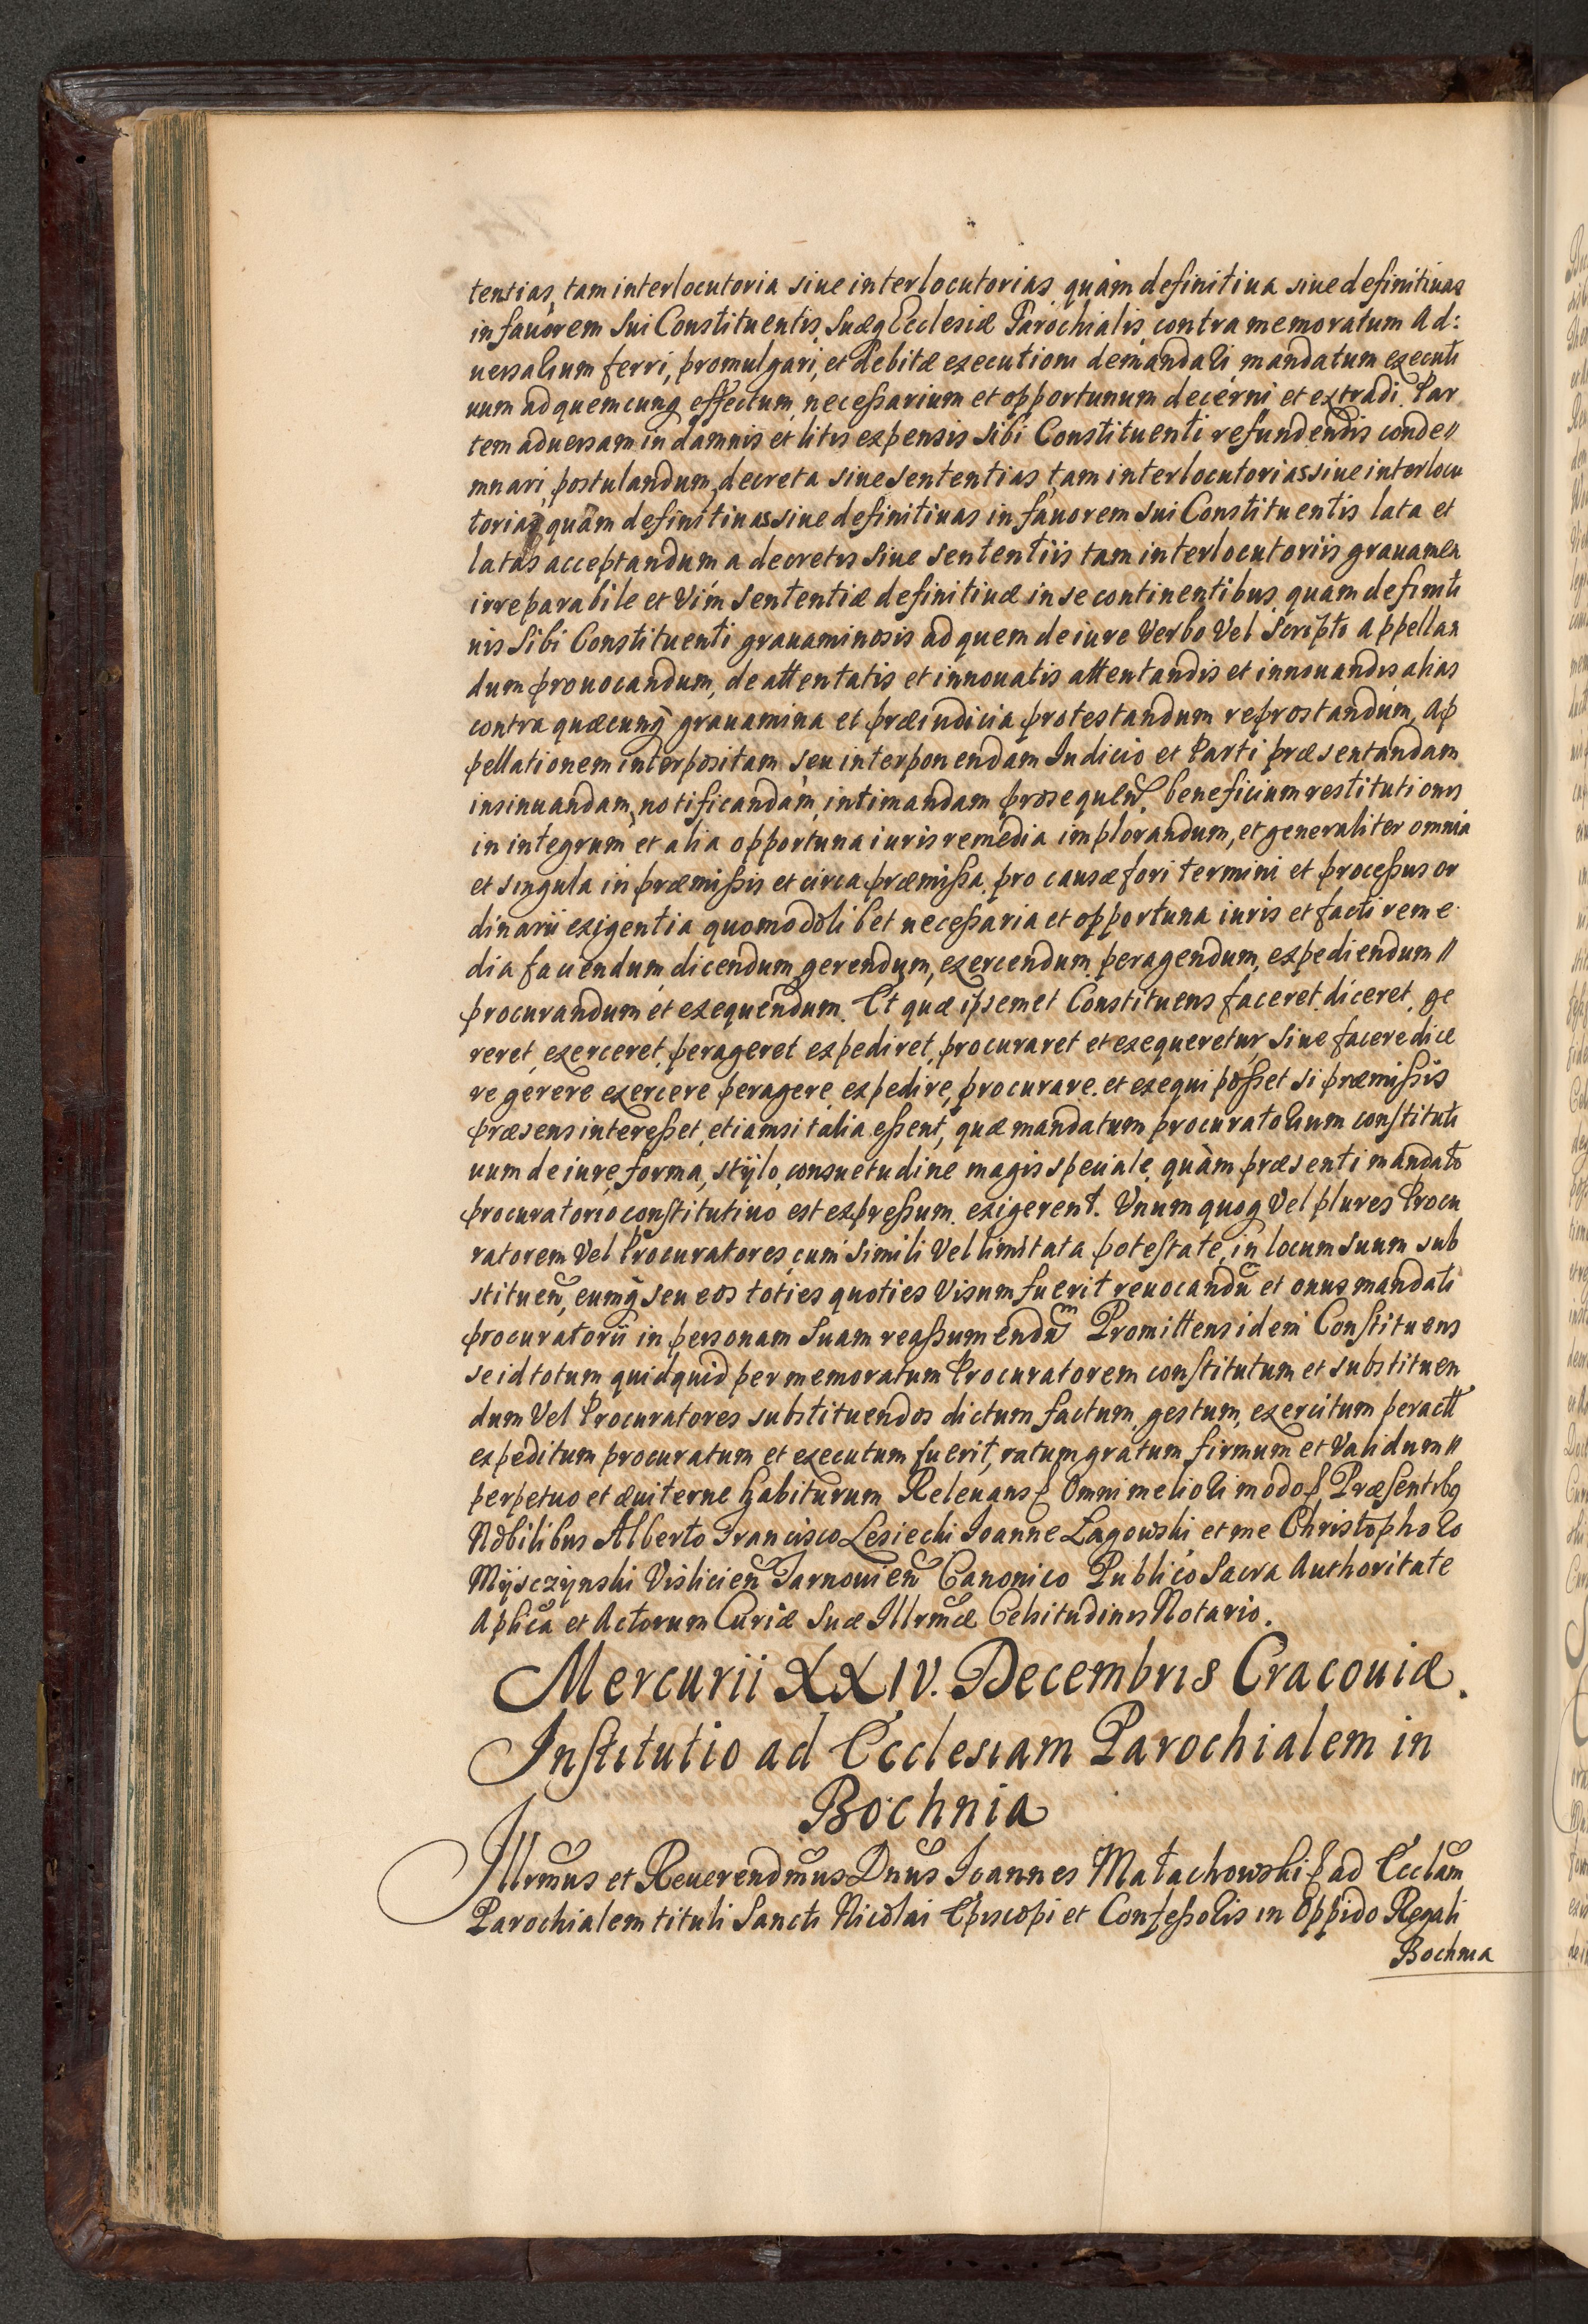 tentias, tam interlocutoria siue interlocutorias quàm definitiua siue definitiuas
in fauorem sui Constituentis, suæq Ecclesiæ Parochialis contra memoratum Ad:
uersarium ferri, promulgari, et debitæ executioni demandari mandatum executi
uum ad quemcunq effectum necessarium et opportunum decerni et extradi. Par
tem aduersam in damnis et litis expensis sibi Constituenti refundendis conde〃
mnari, postulandum, decreta siue sententias tam interlocutorias siue interlocu
torias quàm definitiuas siue definitiuas in fauorem sui Constituentis lata et
latas acceptandum a decretis siue sententiis tam interlocutoriis grauamen
irreparabile et Vim sententiæ definitiuæ in se continentibus quam definiti
uis sibi Constituenti grauaminosis ad quem de iure Verbo Vel Scripto appellan
dum prouocandum, de attentatis et innouatis attentandis et innouandis alias
contra quæcunq grauamina et præiudicia protestandum reprostandum, ap
pellationem interpositam seu interponendam Iudicio et Parti præsentandam
insinuandam, notificandam, intimandam prosequen̄d, beneficium restitutionis
in integrum et alia opportuna iuris remedia implorandum, et generaliter omnia
et singula in præmissis et circa præmissa pro causæ fori termini et processus or
dinarii exigentia quomodolibet necessaria et opportuna iuris et facti reme
dia faciendum dicendum gerendum, exercendum peragendum, expediendum〃
procurandum et exequendum. Et quæ ipsemet Constituens faceret diceret ge
reret, exerceret, perageret expediret, procuraret et exequeretur siue facere dice
re gerere exercere peragere expedire, procurare et exequi posset si præmissis
præsens interesset etiamsi talia essent, quæ mandatum procuratorium constituti
uum de iure, forma, stÿlo, consuetudine magis speciale quàm præsenti mandato
procuratorio constitutiuo est expressum exigerent. Vnum quoq Vel plures Procu
ratorem Vel Procuratores, cum simili Vel limitata potestate, in locum suum sub
stituen̄, eumq seu eos toties quoties Visum fuerit reuocandū et onus mandati
procuratorii in personam suam reassumendum Promittens idem Constituens
se id totum quidquid per memoratum Procuratorem constitutum et substituen
dum Vel Procuratores substituendos dictum factum, gestum, exercitum peractt
expeditum procuratum et executum fuerit, ratum gratum firmum et Validum〃
perpetuo et æuiterne habiturum Releuans ꝭ Omni meliori modo ꝭ Præsentibq
Nobilibus Alberto Francisco Lesiecki Ioanne Łagowski et me Christophoro
Mÿsczÿnski Visliciēn Tarnouiēn Canonico Publico Sacra Authoritate
Aplica et Actorum Curiæ Suæ Illrmæ Celsitudinis Notario.
Mercurii XXIV. Decembris Cracouiæ.
Institutio ad Ecclesiam Parochialem in
Bochnia
Illrmus et Reuerendmus Dnus Ioannes Małachowski ꝭ ad Ecclam
Parochialem tituli Sancti Nicolai Episcopi et Confessoris in Oppido Regali
Bochnia